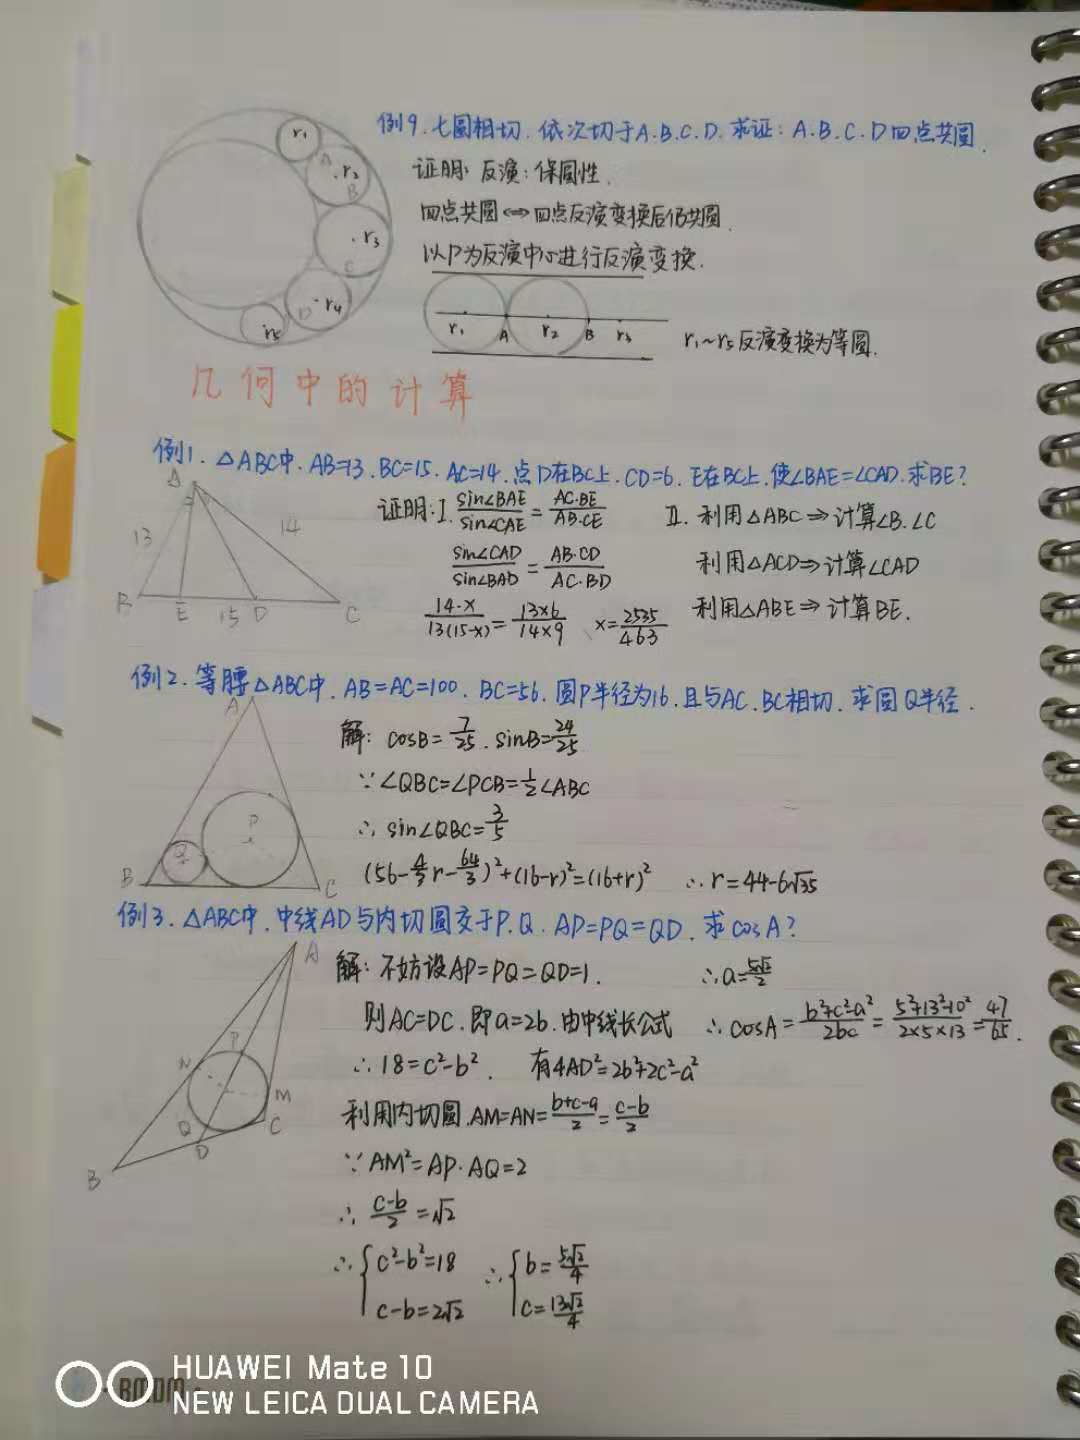 例9. 七圆相切. 依次切于A.B.C.D. 求证: A.B.C.D四点共圆.
r₁
A
r₂
B
r₃
C
D
r₄
r₅
证明: 反演: 保圆性.
四点共圆⇔四点反演变换后仍共圆.
以P为反演中心进行反演变换.
r₁ A r₂ B r₃
r₁~r₅反演变换为等圆.
几何中的计算
例1. △ABC中. AB=13. BC=15. AC=14. 点D在BC上. CD=6. E在BC上. 使∠BAE=∠CAD. 求BE?
A
13
14
B E 15 D C
证明: I. sin∠BAE/sin∠CAE = AC·BE/AB·CE
sin∠CAD/sin∠BAD = AB·CD/AC·BD
14·x/13(15-x) = 13×6/14×9 x=2535/463
II. 利用△ABC⇒计算∠B.∠C
利用△ACD⇒计算∠CAD
利用△ABE⇒计算BE.
例2. 等腰△ABC中. AB=AC=100. BC=56. 圆P半径为16. 且与AC. BC相切. 求圆Q半径.
A
P
Q
B C
解: cosB=7/25. sinB=24/25
∵∠QBC=∠PCB=½∠ABC
∴sin∠QBC=3/5
(56-4/3r-64/3)²+(16-r)²=(16+r)² ∴r=44-6√35
例3. △ABC中. 中线AD与内切圆交于P.Q. AP=PQ=QD. 求cosA?
A
P
N
M
Q
C
D
B
解: 不妨设AP=PQ=QD=1.
则AC=DC. 即a=2b. 由中线长公式
∴18=c²-b². 有4AD²=2b²+2c²-a²
利用内切圆. AM=AN=b+c-a/2=c-b/2
∵AM²=AP·AQ=2
∴c-b/2=√2
∴{c²-b²=18 ∴{b=5√2/4
c-b=2√2 c=13√2/4
∴a=5√2/2
∴cosA=b²+c²-a²/2bc=5²+13²-10²/2×5×13=47/65.
BMDM
HUAWEI Mate 10
NEW LEICA DUAL CAMERA